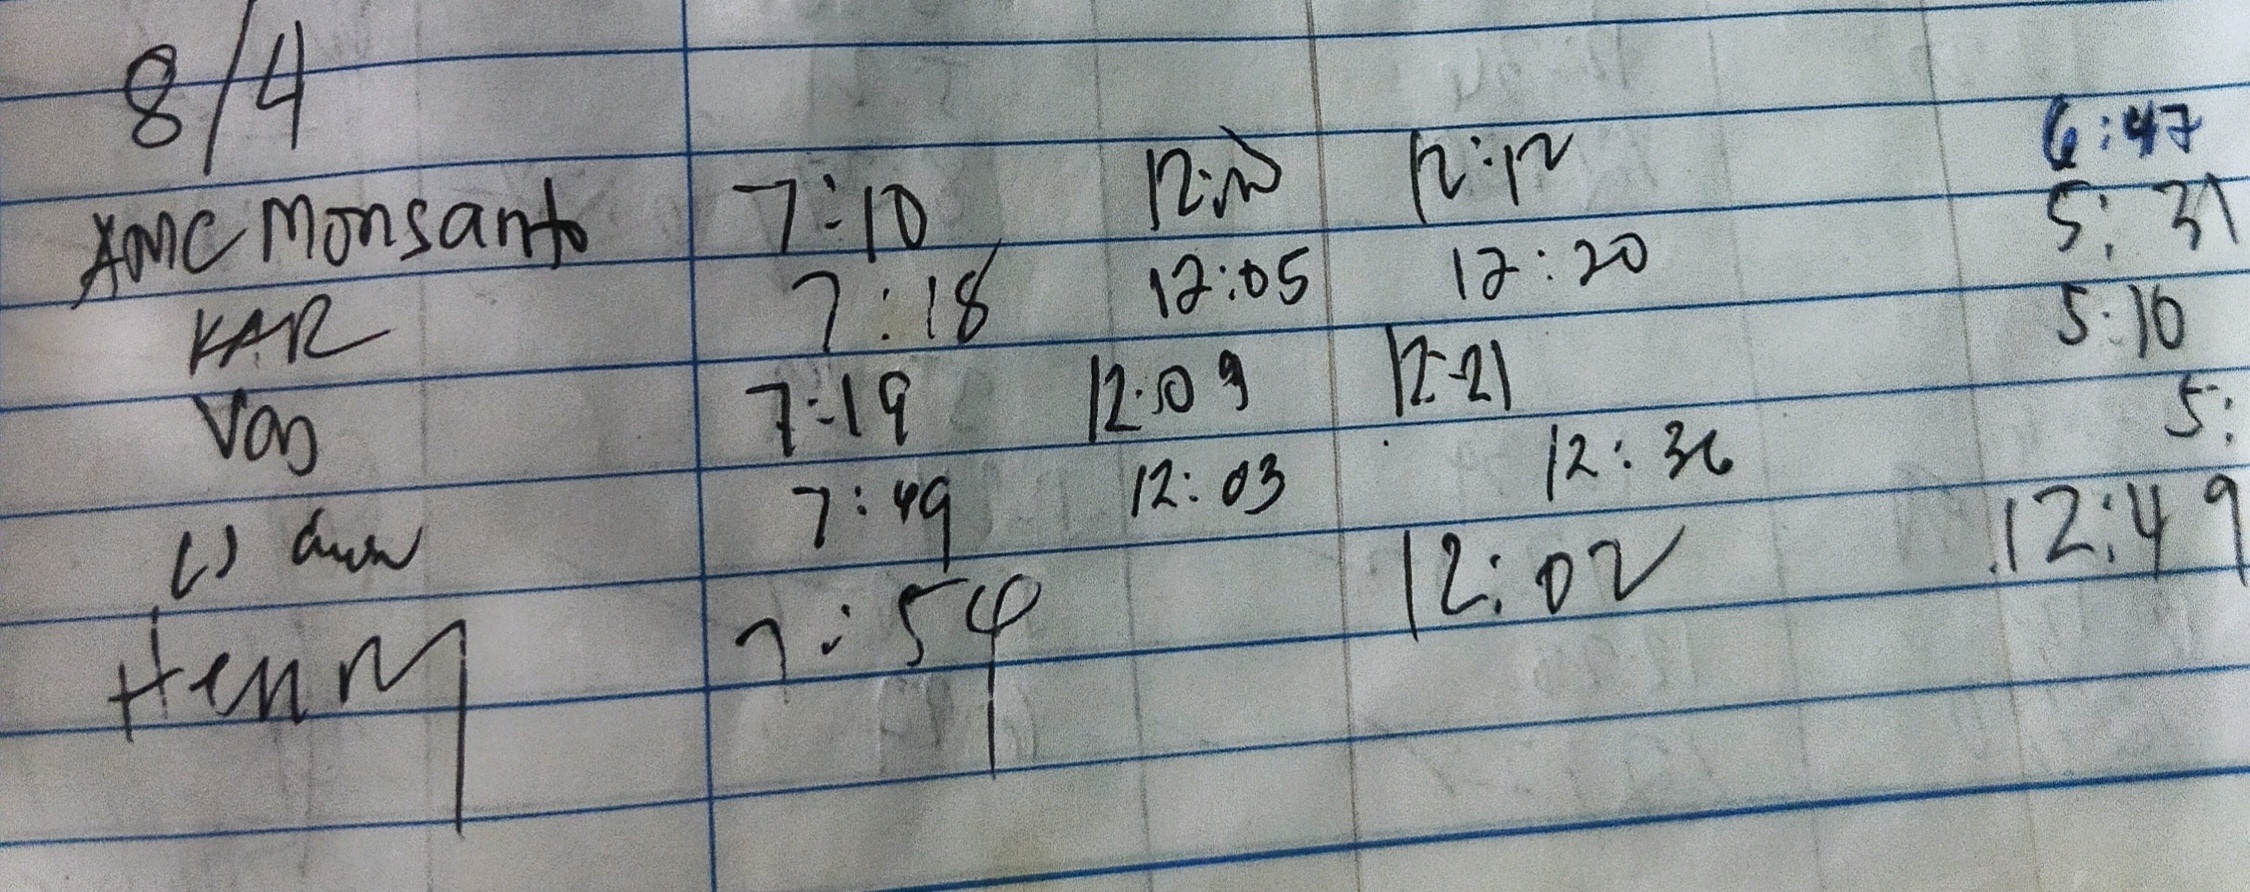 8/4
Monsanto 7:10 12:12 6:47
KAR 7:18 12:05 12:20 5:31
Van 7:19 12:09 12:21 5:10
7:49 12:03 12:36 5:
Henry 7:54 12:02 12:49